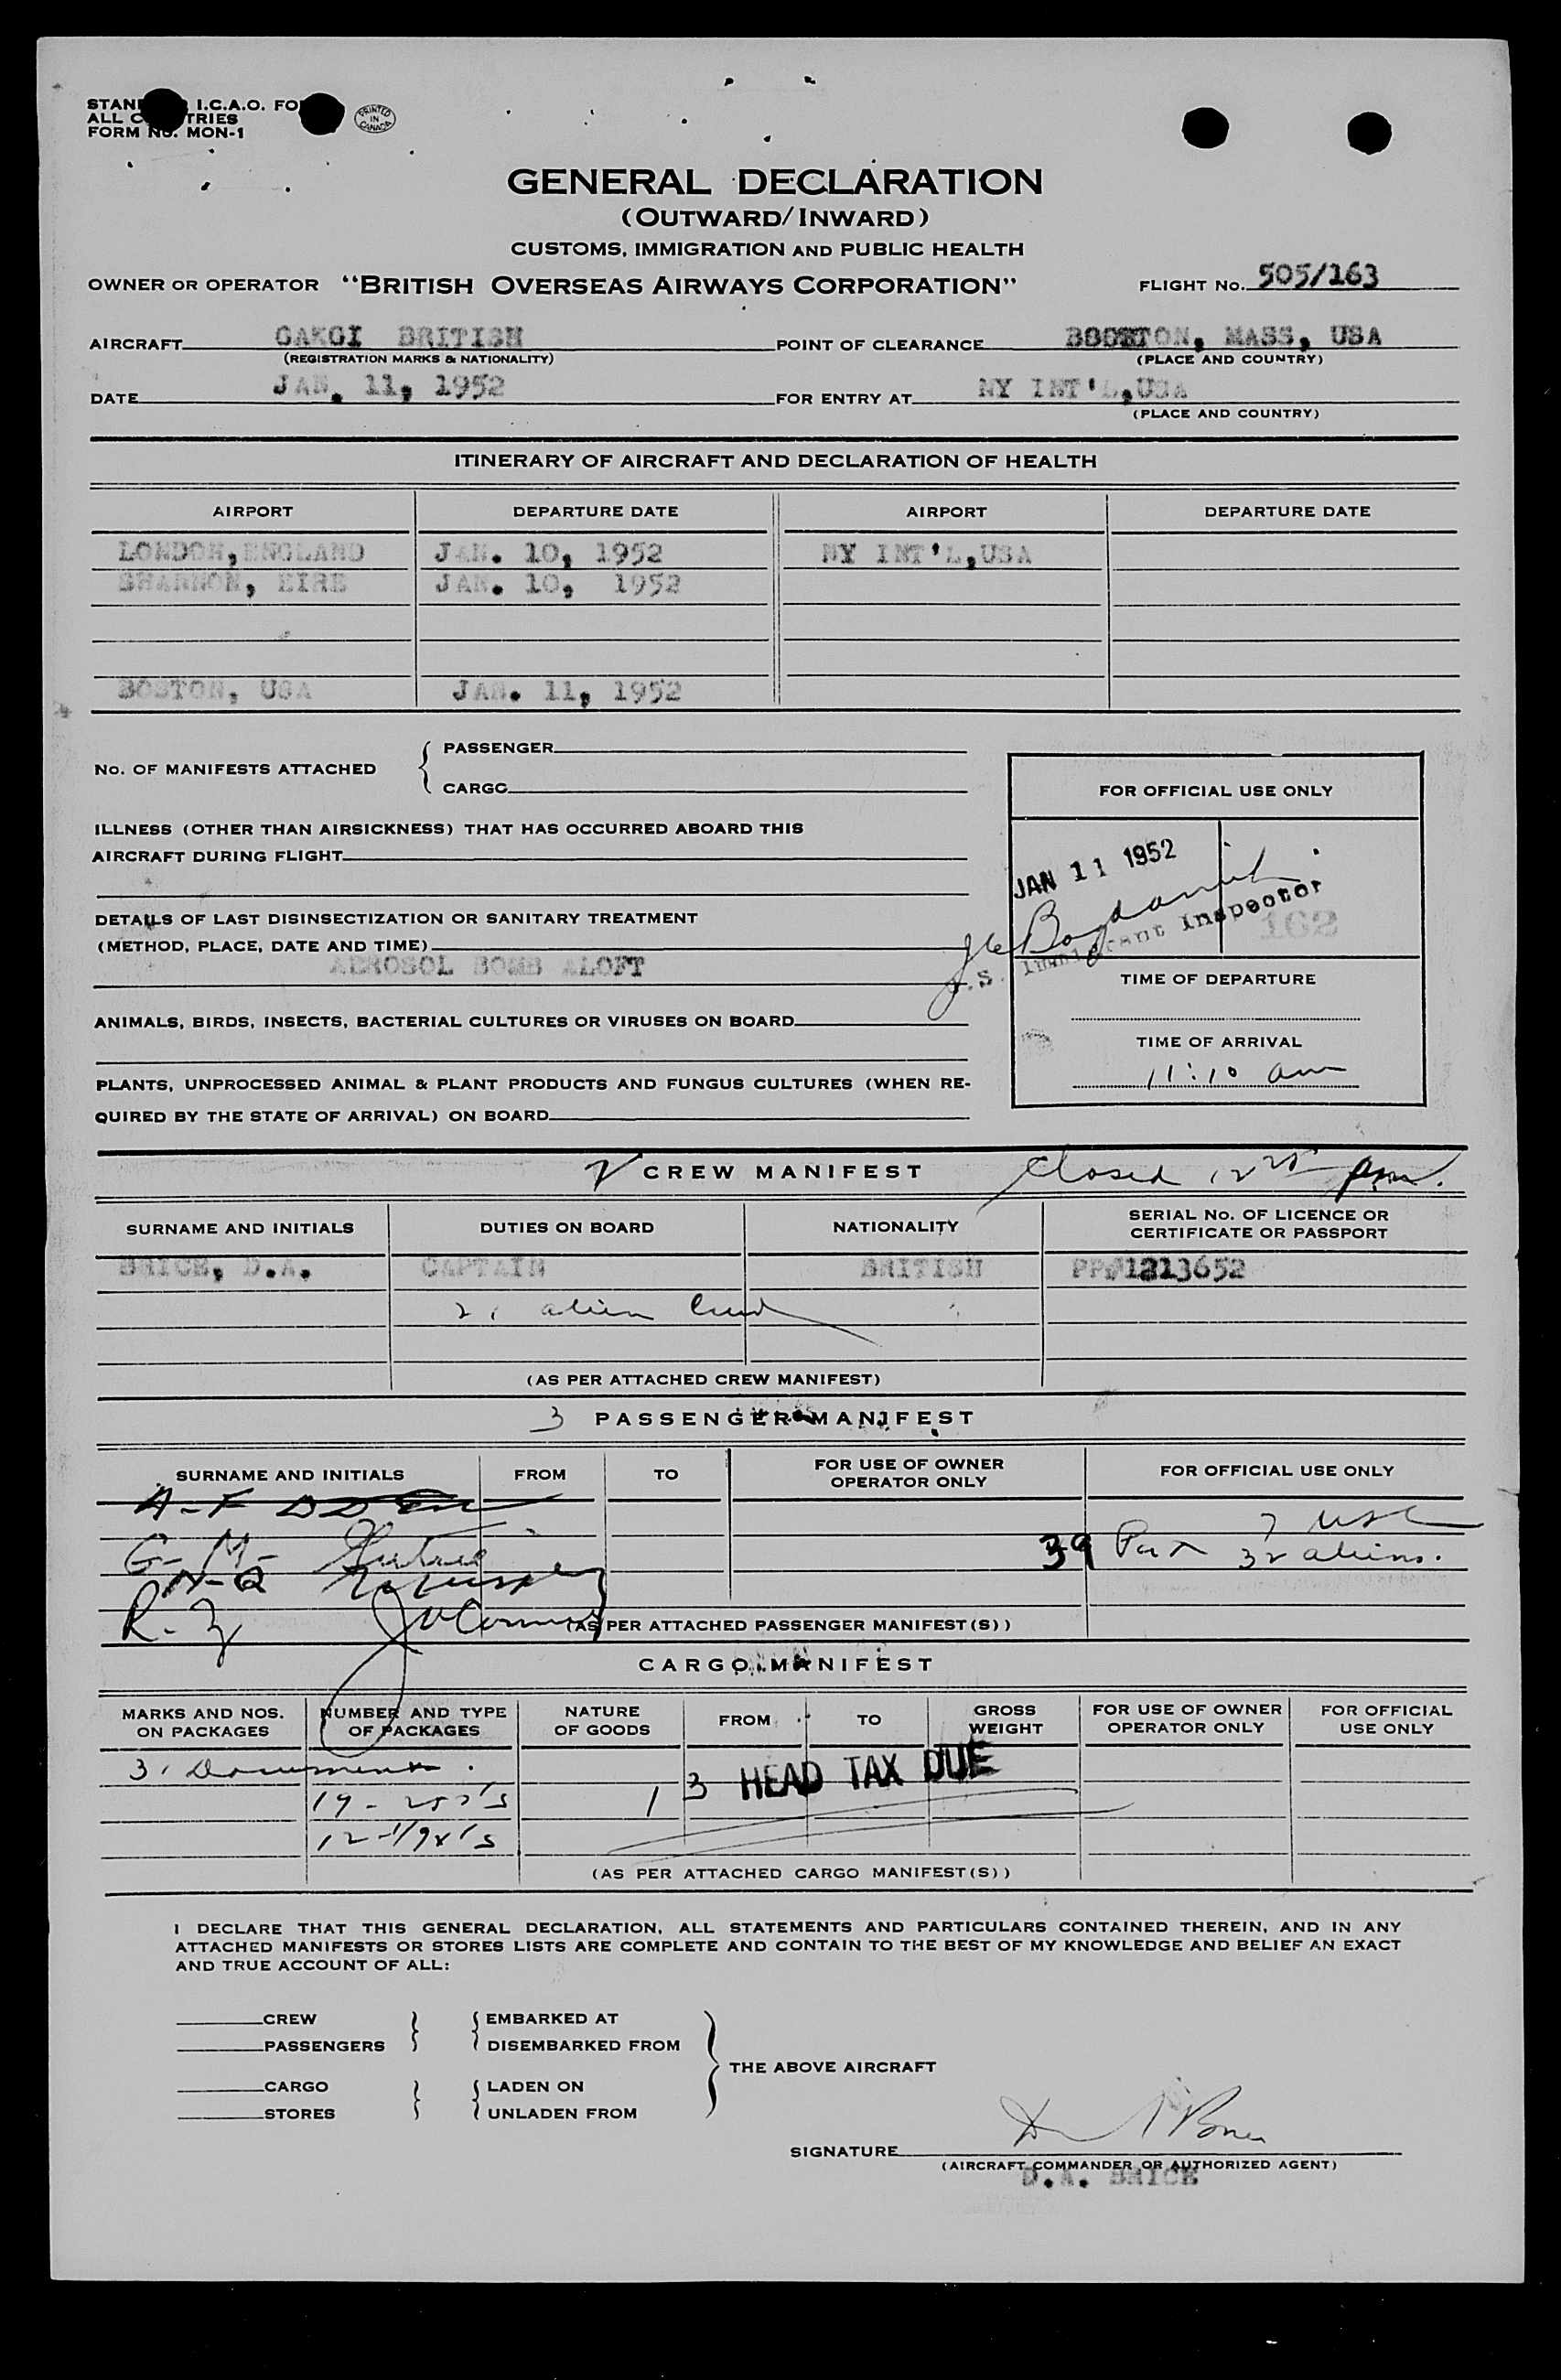 I.C.A.O.
ALL
FORM NO. MON-1
PRINTED IN CANADA
GENERAL DECLARATION
(OUTWARD/INWARD)
CUSTOMS, IMMIGRATION AND PUBLIC HEALTH
OWNER OR OPERATOR "BRITISH OVERSEAS AIRWAYS CORPORATION" FLIGHT No. 505/163
AIRCRAFT GAKGI BRITISH POINT OF CLEARANCE BOSTON, MASS, USA
(REGISTRATION MARKS & NATIONALITY) (PLACE AND COUNTRY)
DATE JAN. 11, 1952 FOR ENTRY AT NY INT'L,USA
(PLACE AND COUNTRY)
ITINERARY OF AIRCRAFT AND DECLARATION OF HEALTH
AIRPORT DEPARTURE DATE AIRPORT DEPARTURE DATE
LONDON,ENGLAND JAN. 10, 1952 NY INT'L,USA
SHANNON, EIRE JAN. 10, 1952
BOSTON, USA JAN. 11, 1952
No. OF MANIFESTS ATTACHED { PASSENGER
CARGO
ILLNESS (OTHER THAN AIRSICKNESS) THAT HAS OCCURRED ABOARD THIS
AIRCRAFT DURING FLIGHT
DETAILS OF LAST DISINSECTIZATION OR SANITARY TREATMENT
(METHOD, PLACE, DATE AND TIME)
AEROSOL BOMB ALOFT
ANIMALS, BIRDS, INSECTS, BACTERIAL CULTURES OR VIRUSES ON BOARD
PLANTS, UNPROCESSED ANIMAL & PLANT PRODUCTS AND FUNGUS CULTURES (WHEN RE-
QUIRED BY THE STATE OF ARRIVAL) ON BOARD
FOR OFFICIAL USE ONLY
JAN 11 1952
U.S. Immigrant Inspector
162
TIME OF DEPARTURE
TIME OF ARRIVAL
11:10 am
CREW MANIFEST Closed 12 pm.
SURNAME AND INITIALS DUTIES ON BOARD NATIONALITY SERIAL No. OF LICENCE OR
CERTIFICATE OR PASSPORT
BRICE, D.A. CAPTAIN BRITISH PP#1213652
alien
(AS PER ATTACHED CREW MANIFEST)
3 PASSENGER MANIFEST
SURNAME AND INITIALS FROM TO FOR USE OF OWNER
OPERATOR ONLY FOR OFFICIAL USE ONLY
A-F
7 USC
G-M-
39 Pax 32 aliens.
N-Q
R-Z
(AS PER ATTACHED PASSENGER MANIFEST(S))
CARGO MANIFEST
MARKS AND NOS.
ON PACKAGES NUMBER AND TYPE
OF PACKAGES NATURE
OF GOODS FROM TO GROSS
WEIGHT FOR USE OF OWNER
OPERATOR ONLY FOR OFFICIAL
USE ONLY
3 HEAD TAX DUE
(AS PER ATTACHED CARGO MANIFEST(S))
I DECLARE THAT THIS GENERAL DECLARATION, ALL STATEMENTS AND PARTICULARS CONTAINED THEREIN, AND IN ANY
ATTACHED MANIFESTS OR STORES LISTS ARE COMPLETE AND CONTAIN TO THE BEST OF MY KNOWLEDGE AND BELIEF AN EXACT
AND TRUE ACCOUNT OF ALL:
CREW EMBARKED AT
PASSENGERS DISEMBARKED FROM
THE ABOVE AIRCRAFT
CARGO LADEN ON
STORES UNLADEN FROM
SIGNATURE
(AIRCRAFT COMMANDER OR AUTHORIZED AGENT)
D.A. BRICE